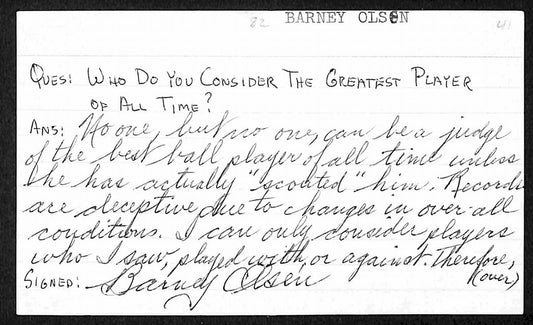 82 BARNEY OLSEN 41
QUES: WHO DO YOU CONSIDER THE GREATEST PLAYER
OF ALL TIME?
ANS: No one, but no one, can be a judge
of the best ball player of all time unless
he has actually "scouted" him. Records
are deceptive due to changes in over-all
conditions. I can only consider players
who I saw, played with, or against. Therefore,
SIGNED: Barney Olsen (over)